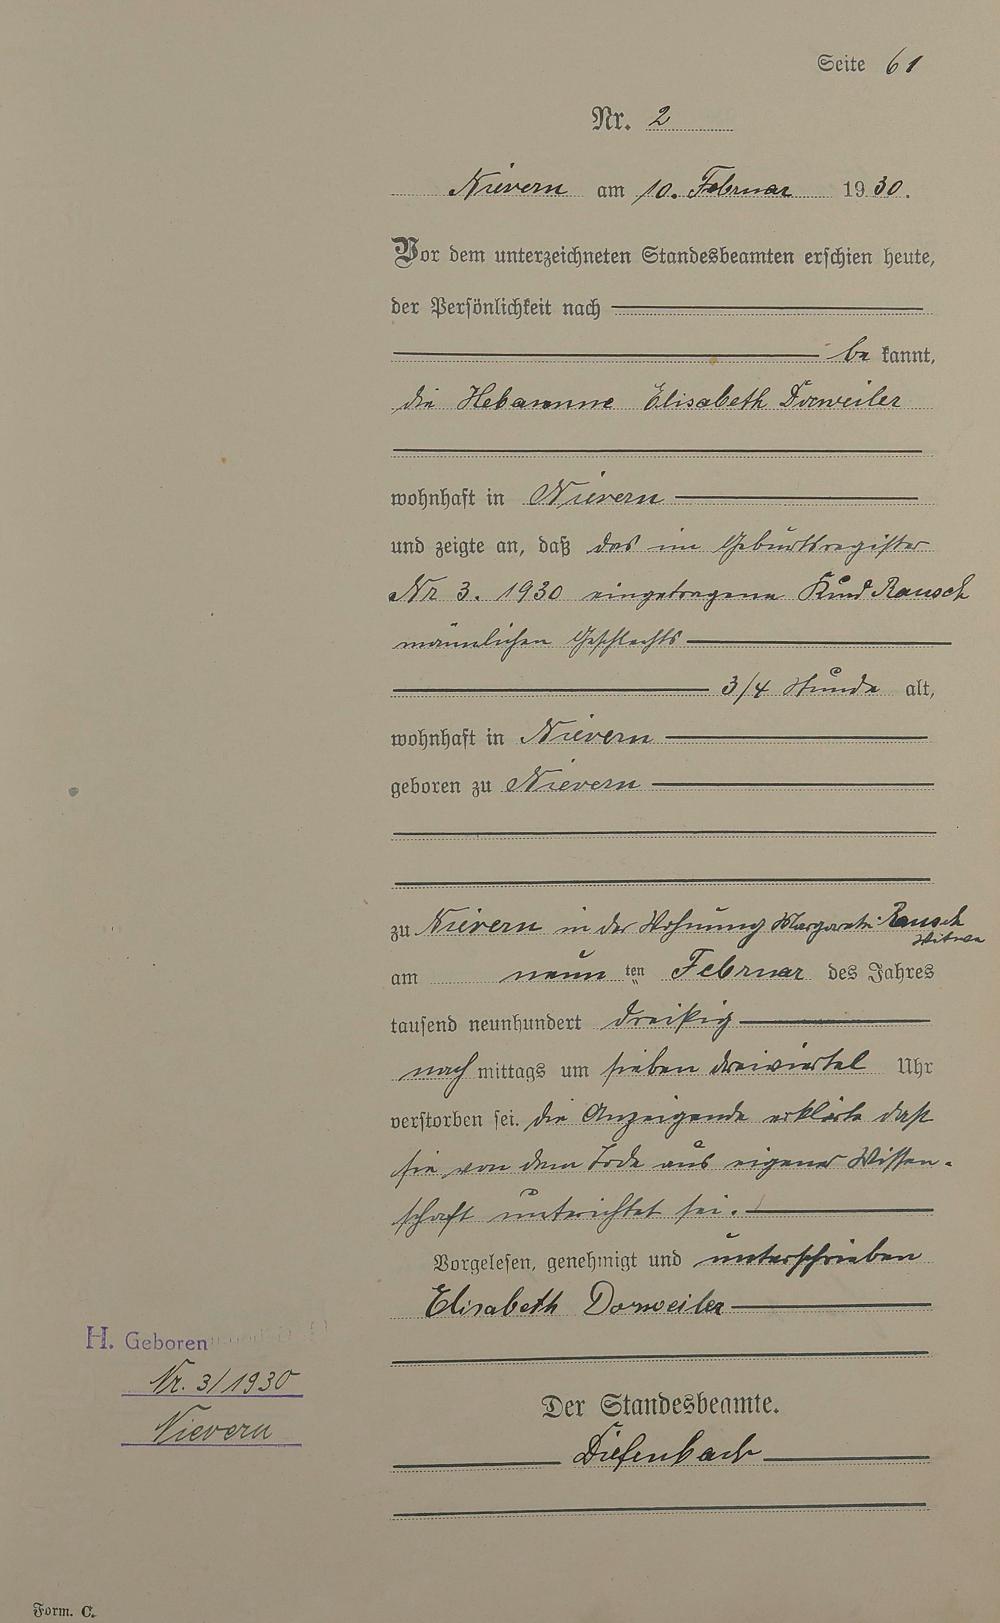 Seite 61
Nr. 2
Nievern am 10. Februar 1930.
Vor dem unterzeichneten Standesbeamten erschien heute,
der Persönlichkeit nach
be kannt,
die Hebamme Elisabeth Dorweiler
wohnhaft in Nievern
und zeigte an, daß das im Geburtsregister
Nr 3. 1930 eingetragene Kind Rausch
männlichen Geschlechts
3/4 Stunde alt,
wohnhaft in Nievern
geboren zu Nievern
zu Nievern in der Wohnung Margarete Rausch
Witwe
am neun ten Februar des Jahres
tausend neunhundert dreißig
nach mittags um sieben dreiviertel Uhr
verstorben sei. die Anzeigende erklärte daß
sie von dem Tode aus eigener Wissen-
schaft unterichtet sei.
Vorgelesen, genehmigt und unterschrieben
Elisabeth Dorweiler
H. Geboren
Nr. 3/1930
Nievern
Der Standesbeamte.
Diefenbach
Form. C.